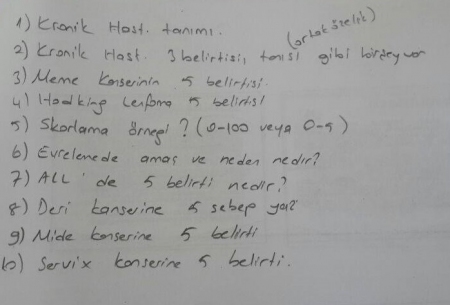 1) Kronik Hast. tanımı.
(ortak özellik)
2) Kronik Hast. 3 belirtisi, tanısı gibi birşeyver
3) Meme Kanserinin 5 belirtisi
4) Hodking Lenfoma 5 belirtisi
5) Skorlama örneği? (0-100 veya 0-5)
6) Evrelemede amaç ve neden nedir?
7) ALL'de 5 belirti nedir?
8) Deri kanserine 5 sebep yaz?
9) Mide kanserine 5 belirti
10) Servix kanserine 5 belirti.